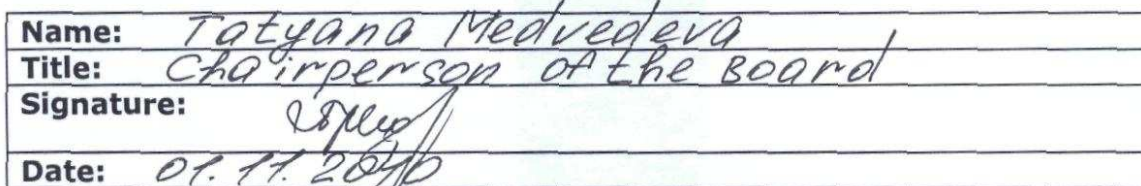 Name: Tatyana Medvedeva
Title: Chairperson of the Board
Signature:
Date: 01.11.2010